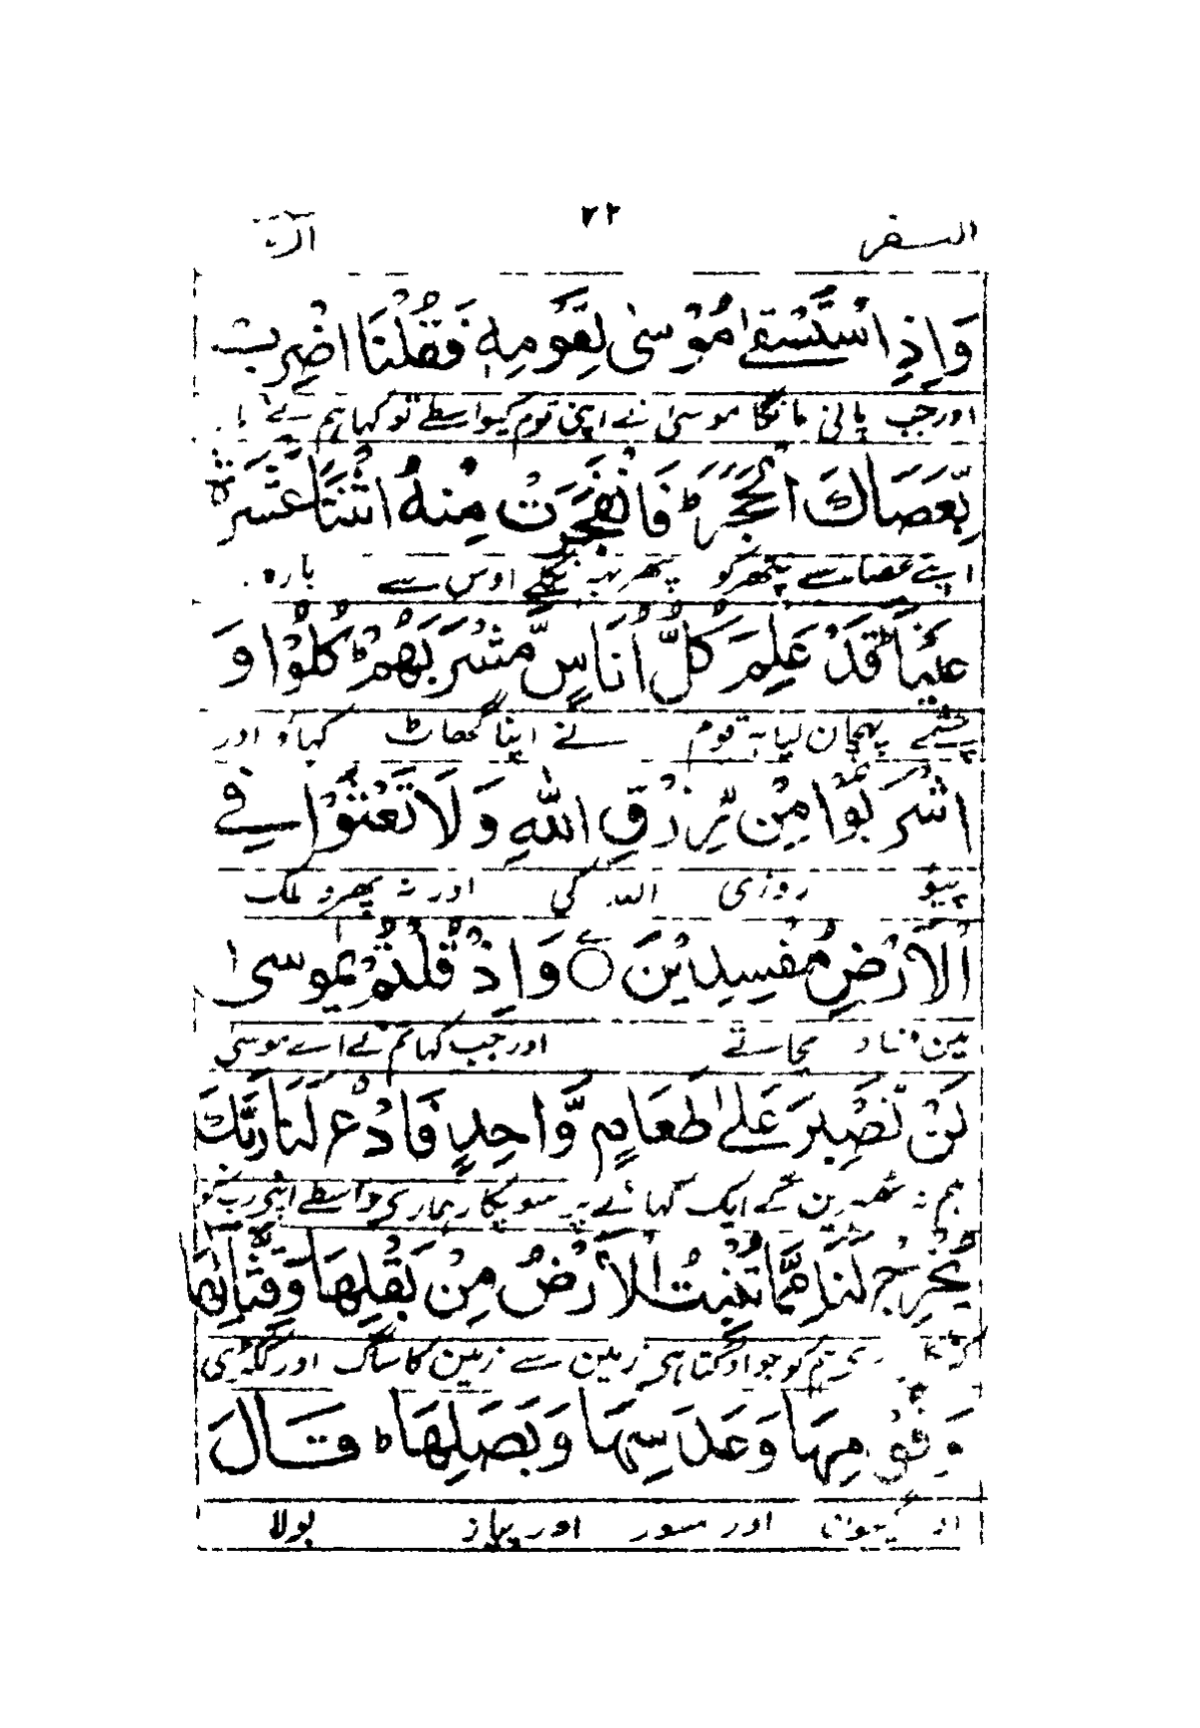 ۲۲
وَاِذِ اسْتَسْقٰى مُوْسٰى لِقَوْمِهٖ فَقُلْنَا اضْرِبْ
اور جب پانی مانگا موسی نے اپنی قوم کیواسطے تو کہا ہم نے
بِّعَصَاكَ الْحَجَرَ ط فَانْفَجَرَتْ مِنْهُ اثْنَتَا عَشْرَةَ
اپنے عصا سے پتھر کو پھر بہہ نکلے اوس سے بارہ
عَيْنًا ط قَدْ عَلِمَ كُلُّ اُنَاسٍ مَّشْرَبَهُمْ ط كُلُوْا وَ
چشمے پہچان لیا قوم نے اپنا گھاٹ کھاؤ اور
اشْرَبُوْا مِنْ رِّزْقِ اللّٰهِ وَلَا تَعْثَوْا فِي
پیو روزی اللہ کی اور نہ پھرو ملک
الْاَرْضِ مُفْسِدِيْنَ ○ وَاِذْ قُلْتُمْ يٰمُوْسٰى
مین فساد مچاتے اور جب کہا تم نے اے موسی
لَنْ نَّصْبِرَ عَلٰى طَعَامٍ وَّاحِدٍ فَادْعُ لَنَا رَبَّكَ
ہم نہ ٹھہرین گے ایک کھانے پر سو پکار ہماری واسطے اپنی رب کو
يُخْرِجْ لَنَا مِمَّا تُنْبِتُ الْاَرْضُ مِنْ بَقْلِهَا وَقِثَّآئِهَا
کو جو اوگتا ہی زمین سے زمین کا ساگ اور ککڑی
وَفُوْمِهَا وَعَدَسِهَا وَبَصَلِهَا ط قَالَ
اور گیہون اور مسور اور پیاز بولا